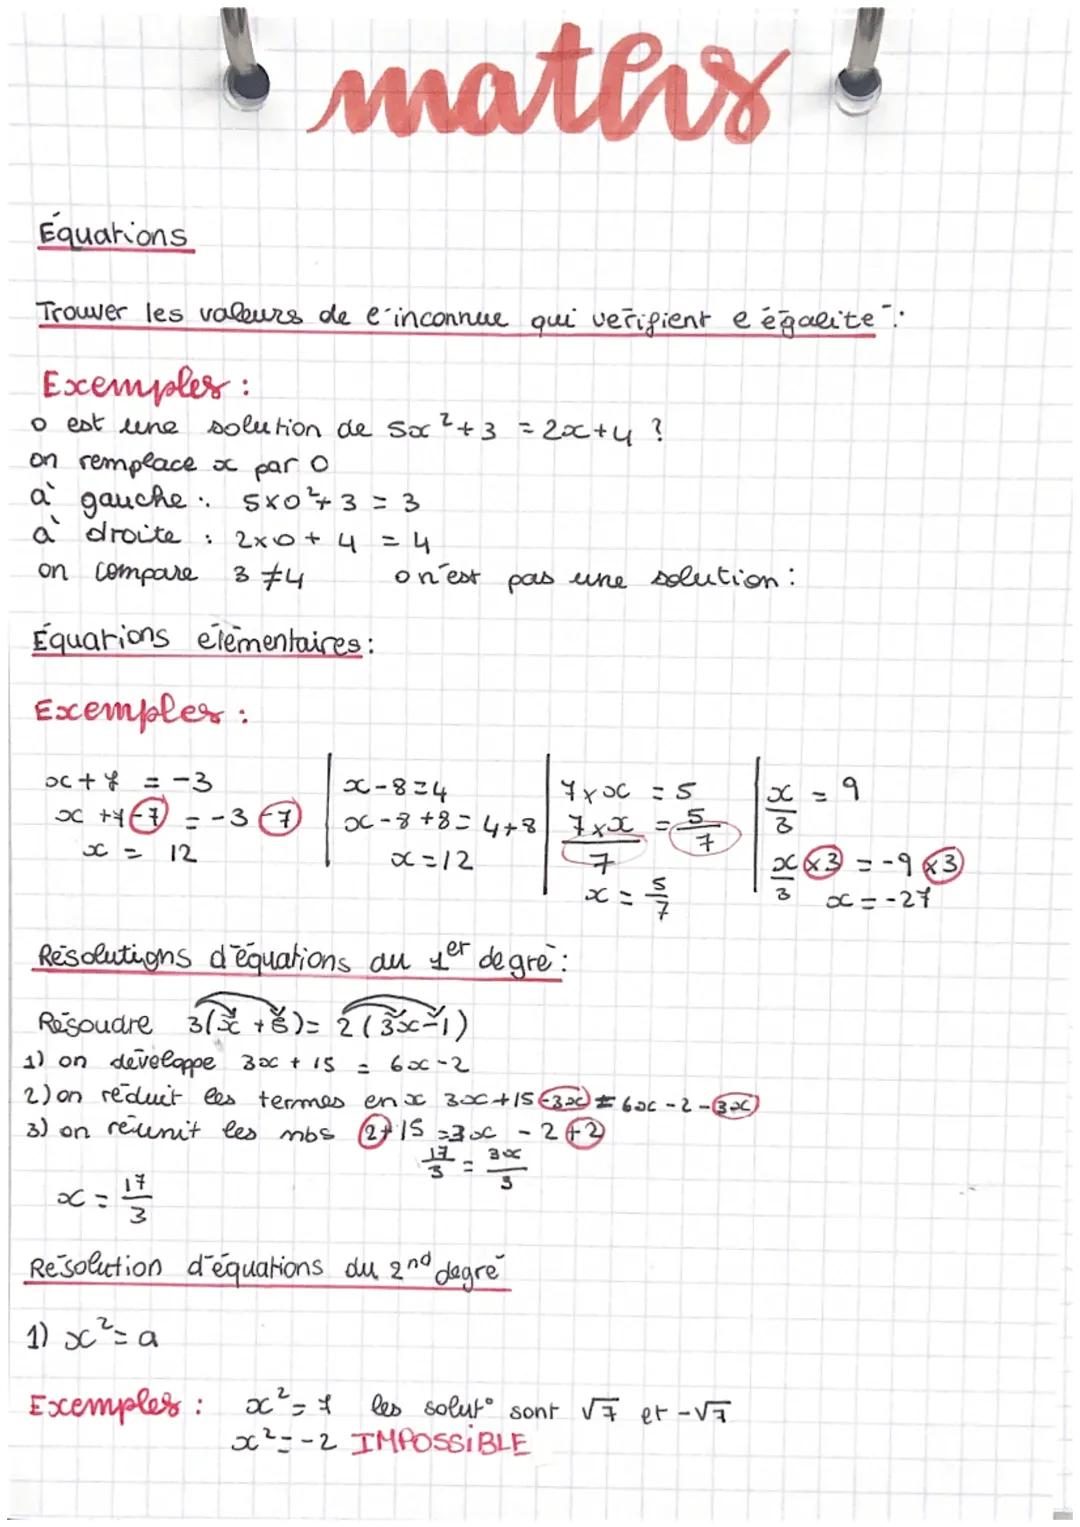 maths
Équations
Trouver les valeurs de l'inconnue qui vérifient l égalité :
Exemples :
0 est une solution de 5x²+3 = 2x+4 ?
on remplace x par 0
à gauche : 5×0²+3 = 3
à droite : 2×0+4 = 4
on compare 3≠4 0 n'est pas une solution :
Équations élémentaires :
Exemples :
x+7 = -3
x +7-7 = -3-7
x = 12
x-8=4
x-8+8=4+8
x=12
7×x = 5
7×x/7 = 5/7
x = 5/7
x/3 = 9
x/3 ×3 = -9 ×3
x = -27
Résolutions d'équations du 1er degré :
Résoudre 3(x+5)= 2(3x-1)
1) on développe 3x + 15 = 6x-2
2) on réduit les termes en x 3x+15-3x = 6x-2-3x
3) on réunit les nbs 2+15 =3x -2+2
17/3 = 3x/3
x = 17/3
Résolution d'équations du 2nd degré
1) x²= a
Exemples : x²= 7 les solut° sont √7 et -√7
x²=-2 IMPOSSIBLE